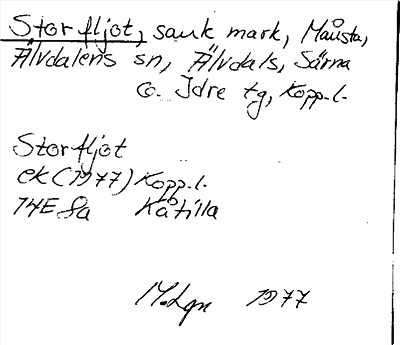 Storfljot, sank mark, Månsta,
Älvdalens sn, Älvdals, Särna
o. Idre tg, Kopp. l.
Storfljot
ek (1977) Kopp. l.
14E 8a Kåtilla
1977